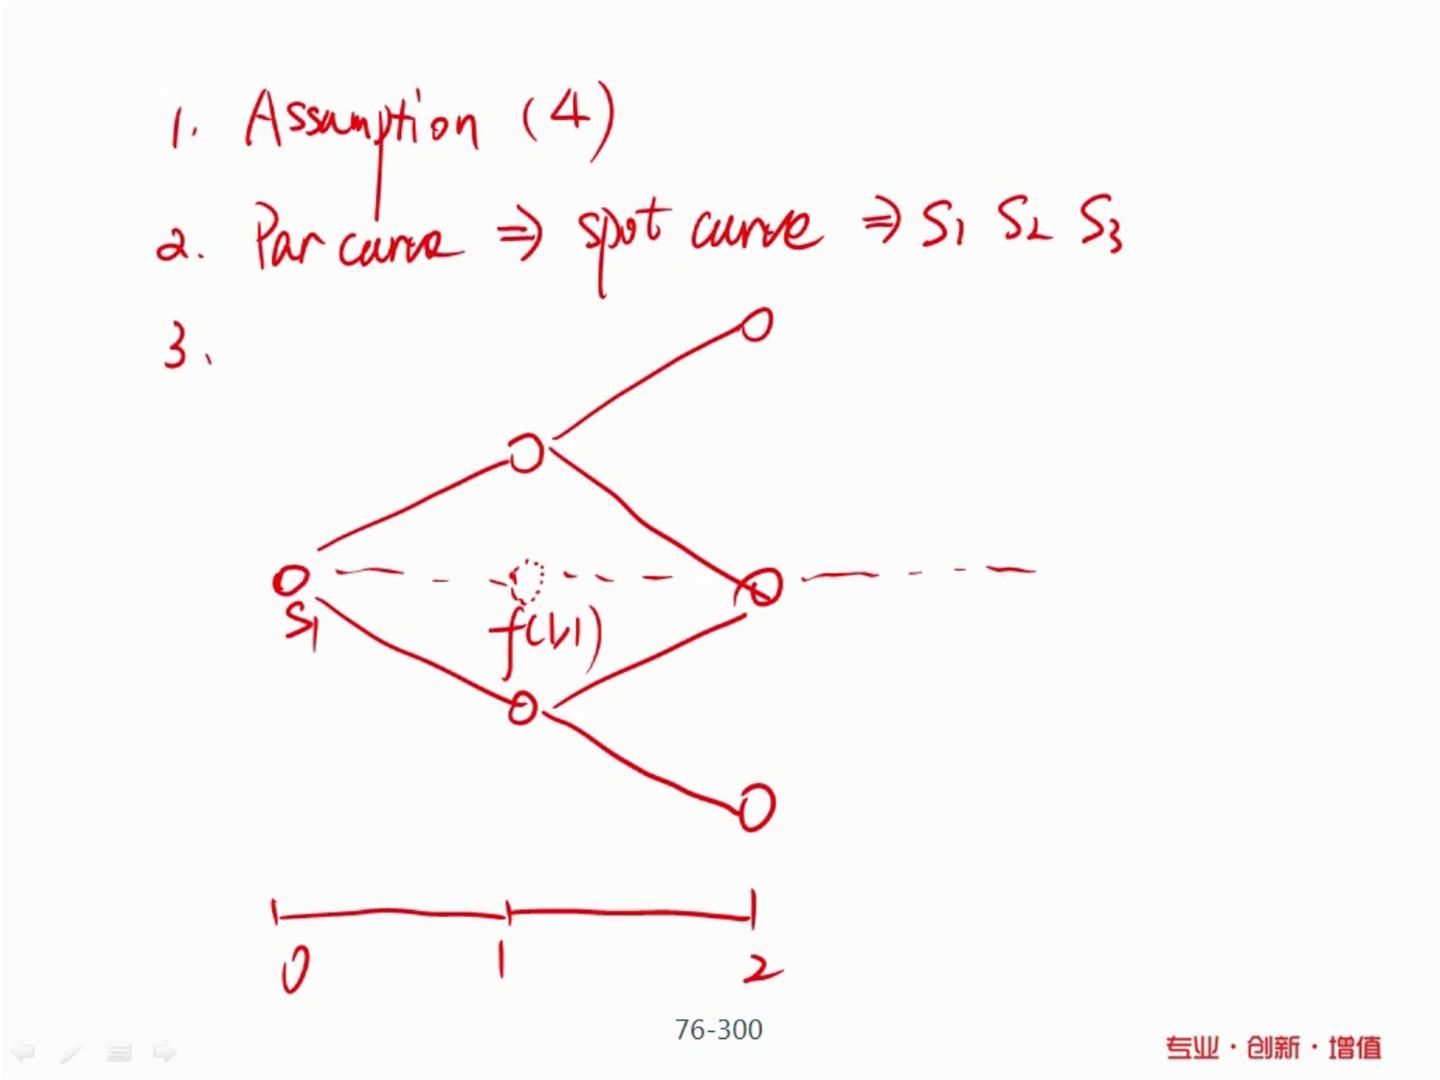 1. Assumption (4)
2. Par curve ⇒ spot curve ⇒ S1 S2 S3
3.
S1
f(1,1)
0 1 2
76-300
专业·创新·增值